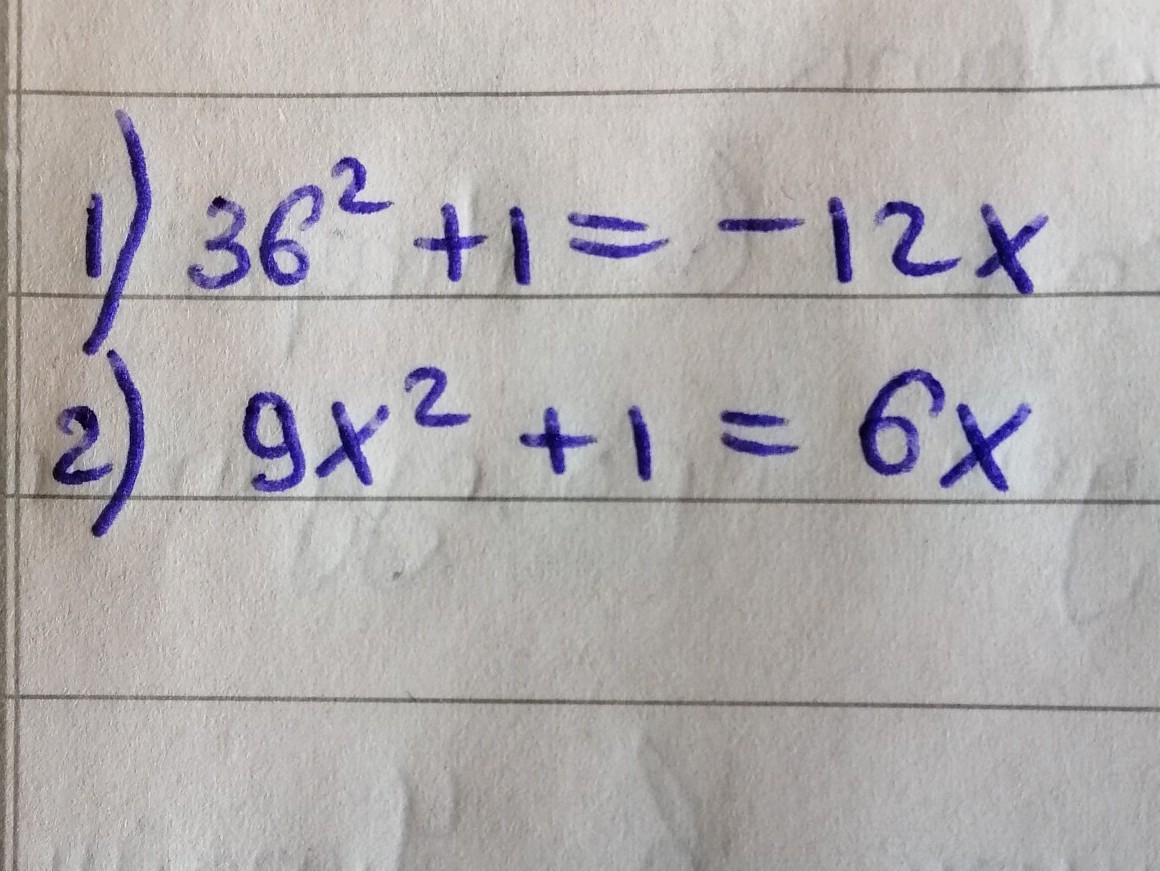 1) 36² + 1 = -12x
2) 9x² + 1 = 6x